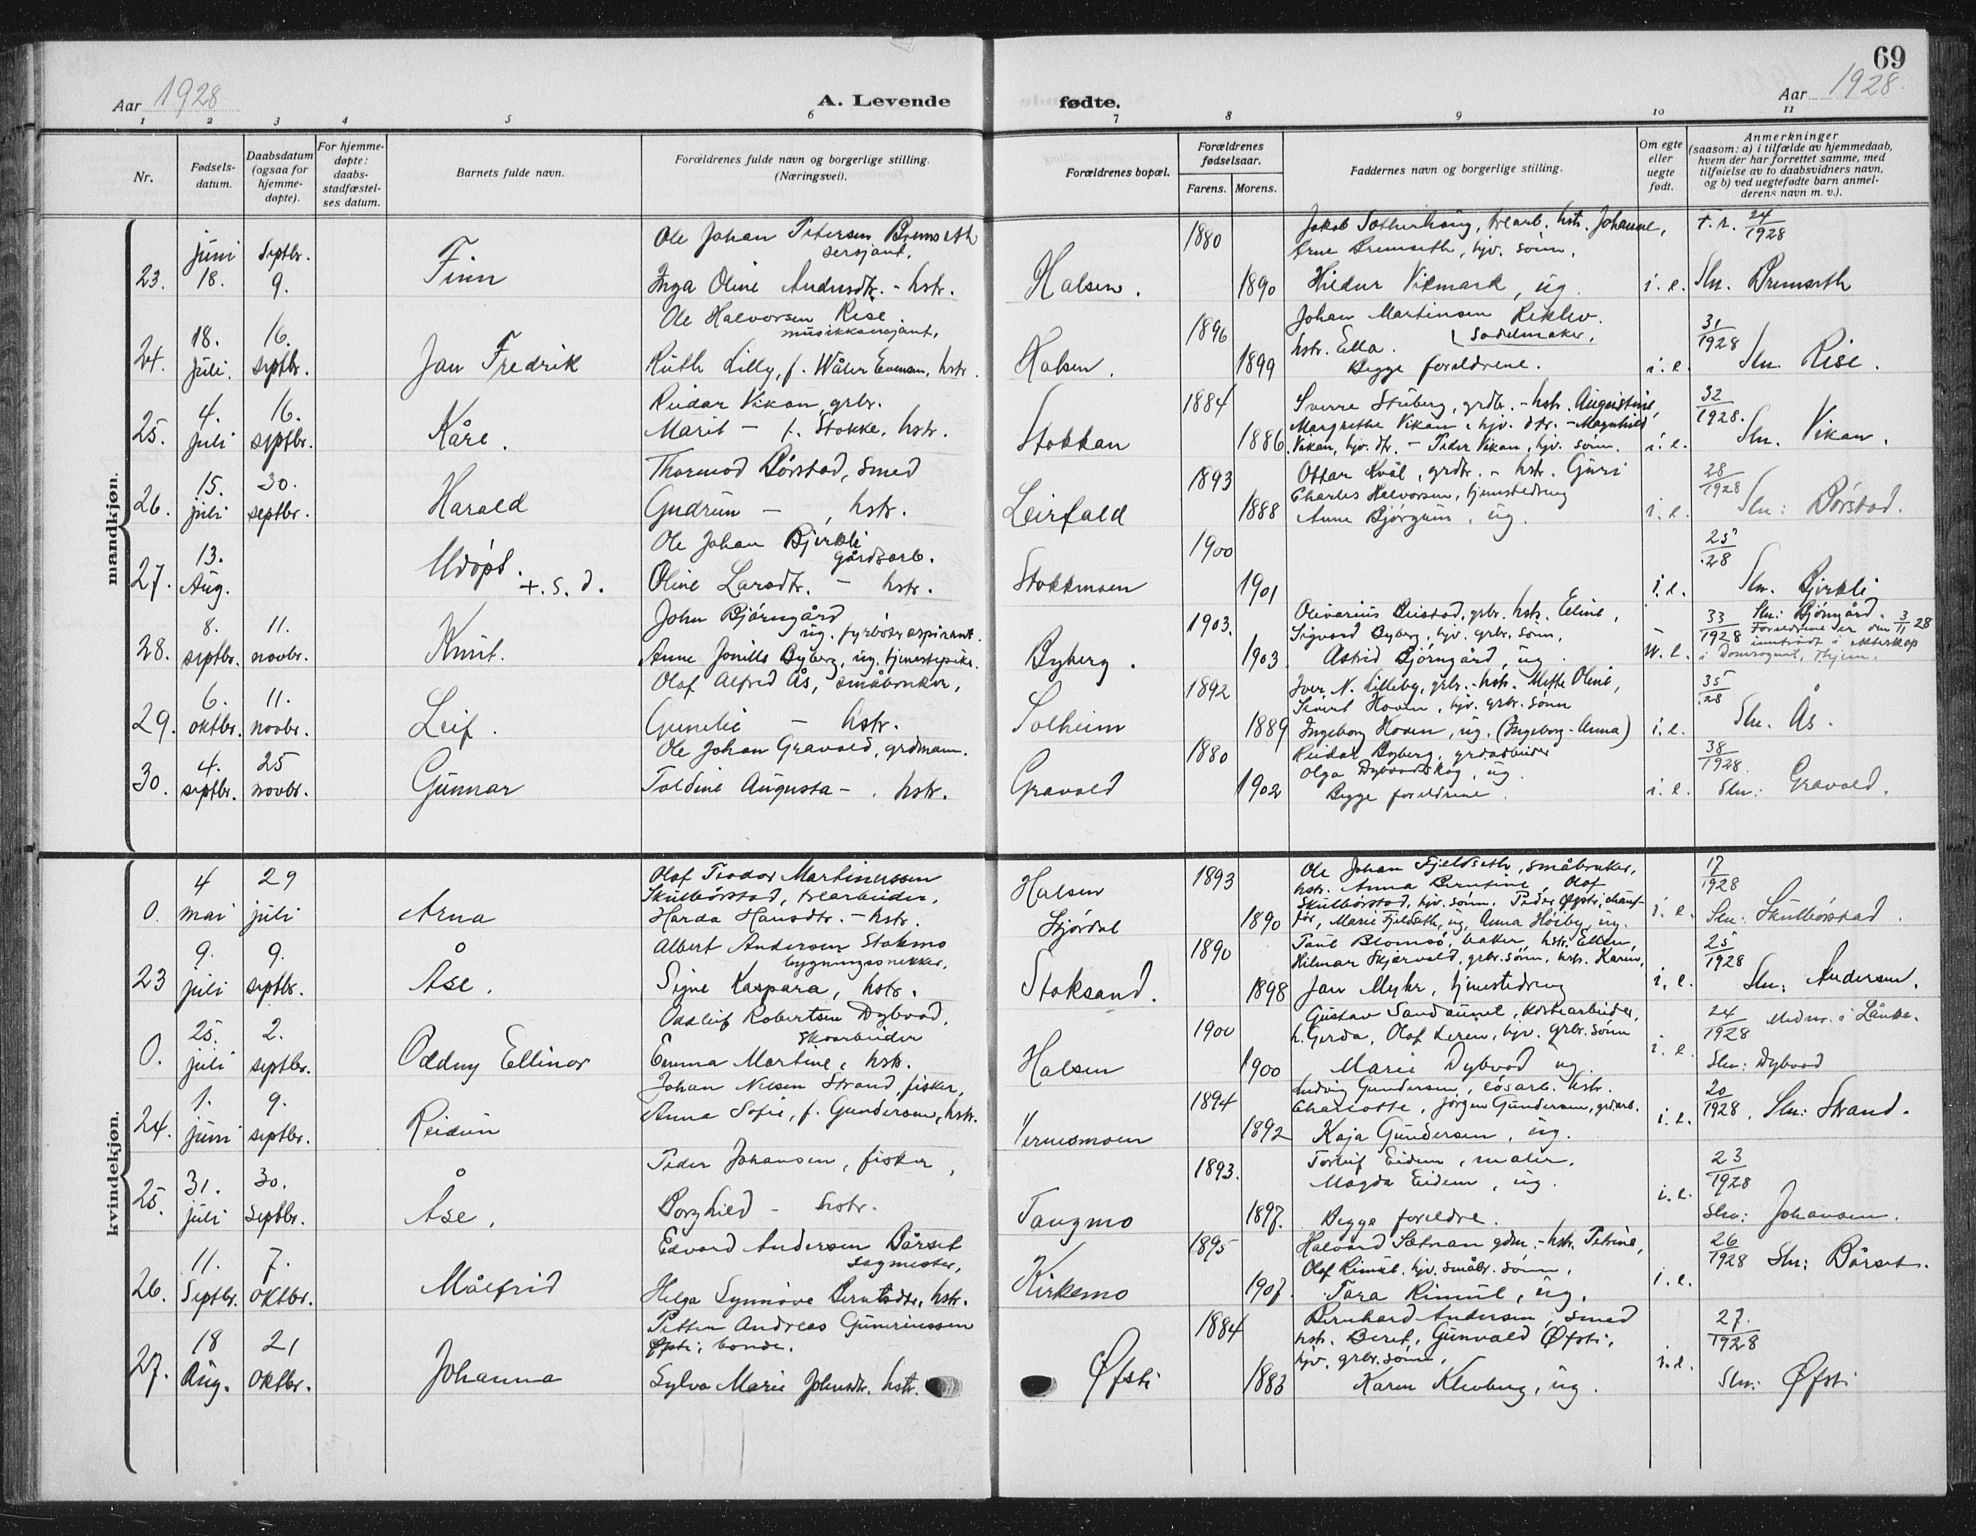 69
Aar 1928
A. Levende
fødte.
Aar 1928.
1 2 3 4 5 6 7 8 9 10 11
Nr.
Fødsels-
datum.
Daabsdatum
(ogsaa for
hjemme-
døpte).
For hjemme-
døpte:
daabs-
stadfæstel-
ses datum.
Barnets fulde navn.
Forældrenes fulde navn og borgerlige stilling.
(Næringsvei).
Forældrenes bopæl.
Forældrenes
fødselsaar.
Farens. Morens.
Faddernes navn og borgerlige stilling.
Om egte
eller
uegte
født.
Anmerkninger
(saasom: a) i tilfælde av hjemmedaab,
hvem der har forrettet samme, med
tilføielse av to daabsvidners navn,
og b) ved uegtefødte barn anmel-
derens navn m. v.).
mandkjøn.
23. juni 18. septbr. 9. Finn
Ole Johan Petersen Bremseth
sersjant.
Inga Oline Andersdtr. - hstr.
Halsen. 1880 1890
hstr. Johanne,
Arne Bremseth, hjv. sønn.
Hildur Vikmark, ug.
i. e.
F. r. 24/1928
Sln. Bremseth
24. 18. juli. 16. septbr. Jan Fredrik
Ole Halvorsen Rise
musikksersjant,
Ruth Lilly, f. Wåler Evensen, hstr.
Halsen. 1896 1899
Johan Martinsen
hstr. Ella. Sadelmaker,
Begge foreldrene.
i. e.
31/1928
Sln. Rise.
25. 4. juli 16. septbr. Kåre.
Reidar Vikan, grbr.
Marit - f. Stokke, hstr.
Stokkan 1884 1886.
Sverre Stuberg, grdbr. - hstr. Augustine,
Margrethe Vikan, hjv. dtr. - Magnhild
Vikan, hjv. dtr. - Peder Vikan, hjv. sønn.
i. e.
32/1928.
Sln. Vikan.
26. 15. juli 30. septbr. Harald
Thormod Børstad, smed
Gudrun - , hstr.
Leirfald 1893 1888
Ottar Kvål, grdbr. - hstr. Guri
Charles Halvorsen, tjenestedreng
Anne Bjørgum, ug.
i. e.
28/1928
Sln: Børstad.
27. 13. Aug. Udøpt. + s. d.
Ole Johan Bjerkli
gårdsarb.
Oline Larsdtr. - hstr.
Stokkmoen 1900 1901
i. e.
25/28
Sln. Bjerkli
28. 8. septbr. 11. novbr. Knut.
John Bjørngård
ug. fyrbøteraspirant.
Anne Jonille Byberg, ug. tjenestepike.
Byberg. 1903. 1903
Olivarius Beistad, grbr. hstr. Eline,
Sigvard Byberg, hjv. grbr. sønn,
Astrid Bjørngård, ug.
u. e.
33/1928
Sln: Bjørngård.
Foreldrene er den 3/11 28
inntrådt i ekteskap
i Domsognet, Thjem.
29. 6. oktbr. 11. novbr. Leif.
Olaf Alfred Ås, småbruker,
Gunelie - hstr.
Solheim 1892 1889
Iver N. Lilleby, grbr. - hstr. Mette Oline,
Sivert Hoven, hjv. grbr. sønn
Ingeborg Hoven, ug. (Ingeborg-Anna)
i. e.
35/28
Sln. Ås.
30. 4. septbr. 25 novbr. Gunnar
Ole Johan Gravald, grdmann.
Toldine Augusta - . hstr.
Gravald 1880 1902
Reidar Byberg, grdarbeider
Olga Dybvadskog, ug.
Begge foreldrene.
i. e.
38/1928.
Sln: Gravald.
kvindekjøn.
0. 4 mai 29 juli Arna
Olaf Teodor Martinussen
Skulbørstad, trearbeider,
Harda Hansdtr. - hstr.
Halsen
Stjørdal 1893 1890
Ole Johan Fjeldseth, småbruker,
hstr. Anna Berntine, Olaf
Skulbørstad, hjv. sønn. Peder Øfsti, chauf-
før, Marie Fjeldseth, ug. Anna Høiby, ug.
i. e.
17/1928
Sln: Skulbørstad.
23 9. juli 9. septbr. Åse.
Albert Andersen Stokmo
bygningssnekker,
Signe Kaspara, hstr.
Stoksand. 1890 1898
Paul Blomsø, baker, hstr. Ellen,
Hilmar Skjervold, grbr. sønn, hstr. Karen,
Jan Myhr, tjenestedreng
i. e.
25/1928
Sln: Andersen.
0. 25. juli 2. septbr. Oddny Ellinor
Oddleif Robertsen Dybvad,
skoarbeider
Emma Martine, hstr.
Halsen 1900 1900
Gustav Sandaunet,
h. Gerda, Olaf Leren, hjv. grbr. sønn
Marie Dybvad ug.
i. e.
24/1928 Medm. i Lånke.
Sln: Dybvad
24. 1. juni 9. septbr. Reidun
Johan Nilsen Strand, fisker,
Anna Sofie, f. Gundersen, hstr.
Vernesmoen 1894 1892
Ludvig Gundersen, løsarb. hstr.
Charlotte, Jørgen Gundersen, grdarb.
Kaja Gundersen, ug.
i. e.
20/1928. Sln: Strand.
25. 31. juli 30. septbr. Åse.
Peder Johansen, fisker,
Borghild - hstr.
Tangmo 1893. 1897.
Torleif Eidem, maler.
Magda Eidem, ug.
Begge foreldre.
i. e.
23/1928
Sln: Johansen.
26. 11. Septbr. 7. oktbr. Målfrid
Edvard Andersen Børset
sagmester,
Helga Synnøve Berntsdtr, hstr.
Kirkemo 1895 1907.
Halvard Sætnan gdm. - hstr. Petrine,
Olaf Rimul, hjv. småbr. sønn,
Tora Rimul, ug.
i. e.
26/1928 Sln: Børset.
27. 18 Aug. 21 oktbr. Johanna
Petter Andreas Guneriussen
Øfsti, bonde.
Sylva Marie Johnsdtr. hstr.
Øfsti 1884 1883
Bernhard Andersen, smed
hstr. Beret, Gunvald Øfsti,
hjv. grbr. sønn,
Karen Kleoberg, ug.
i. e.
27./1928
Sln: Øfsti